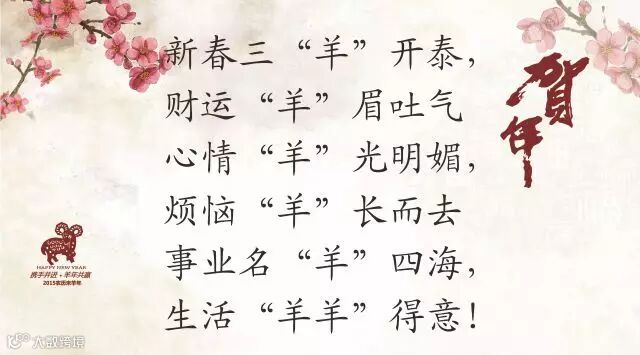 新春三“羊”开泰，
财运“羊”眉吐气
心情“羊”光明媚，
烦恼“羊”长而去
事业名“羊”四海，
生活“羊羊”得意！
贺年
HAPPY NEW YEAR
携手并进·羊年共赢
2015农历未羊年
大数跨境